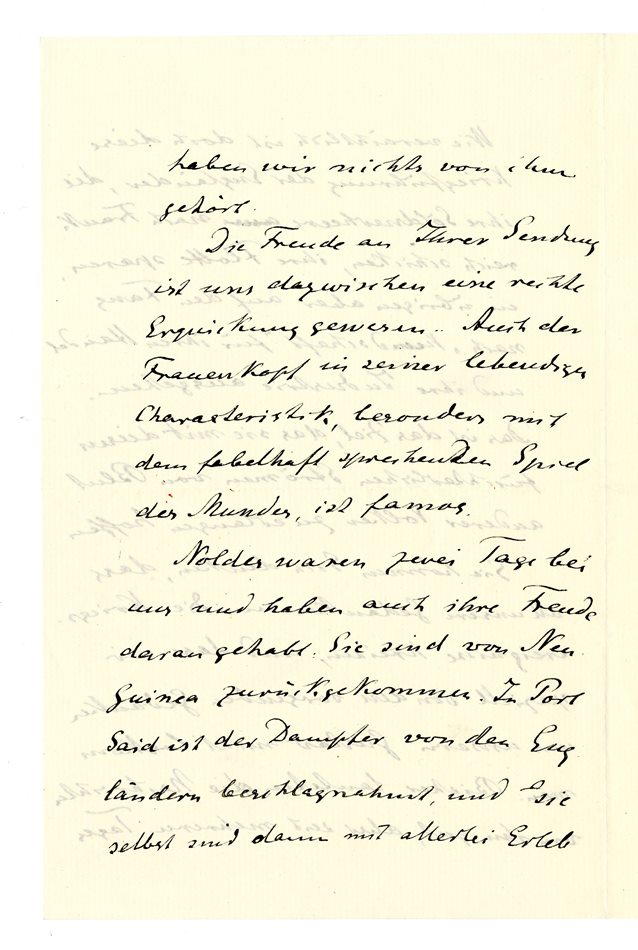 haben wir nichts von ihm
gehört.
Die Freude an Ihrer Sendung
ist uns dazwischen eine rechte
Erquickung gewesen.. Auch der
Frauenkopf in seiner lebendigen
Charakteristik, besonders mit
dem fabelhaft sprechenden Spiel
des Mundes, ist famos.
Noldes waren zwei Tage bei
uns und haben auch ihre Freude
daran gehabt. Sie sind von Neu
Guinea zurückgekommen. In Port
Said ist der Dampfer von den Eng
ländern beschlagnahmt, und sie
selbst sind dann mit allerlei Erleb